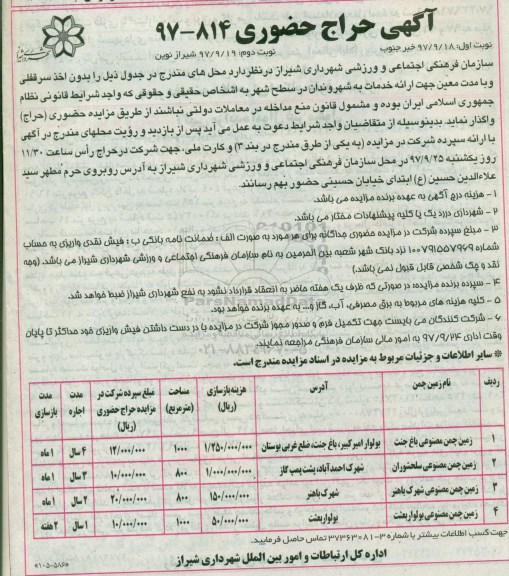 آگهی حراج حضوری ۸۱۴-۹۷
نوبت اول: ۹۷/۹/۱۸ خبر جنوب نوبت دوم: ۹۷/۹/۱۹ شیراز نوین
سازمان فرهنگی اجتماعی و ورزشی شهرداری شیراز در نظر دارد محل های مندرج در جدول ذیل را بدون اخذ سرقفلی
و با مدت معین جهت ارائه خدمات به شهروندان در سطح شهر به اشخاص حقیقی و حقوقی که واجد شرایط قانونی نظام
جمهوری اسلامی ایران بوده و مشمول قانون منع مداخله در معاملات دولتی نباشند از طریق مزایده حضوری (حراج)
واگذار نماید. بدینوسیله از متقاضیان واجد شرایط دعوت به عمل می آید پس از بازدید و رؤیت محلهای مندرج در آگهی
با ارائه سپرده شرکت در مزایده (به یکی از طرق مندرج در بند ۳) و کارت ملی، جهت شرکت در حراج رأس ساعت ۱۱/۳۰
روز یکشنبه ۹۷/۹/۲۵ در محل سازمان فرهنگی اجتماعی و ورزشی شهرداری شیراز به آدرس روبروی حرم مطهر سید
علاءالدین حسین (ع) ابتدای خیابان حسینی حضور بهم رسانند.
۱- هزینه درج آگهی به عهده برنده مزایده می باشد.
۲- شهرداری در رد یک یا کلیه پیشنهادات مختار می باشد.
۳- مبلغ سپرده شرکت در مزایده حضوری جداگانه برای هر مورد به صورت الف: ضمانت نامه بانکی ب: فیش نقدی واریزی به حساب
شماره ۱۰۰۷۹۱۵۵۷۹۶۹ نزد بانک شهر شعبه بین الحرمین به نام سازمان فرهنگی اجتماعی و ورزشی شهرداری شیراز می باشد. (وجه
نقد و چک شخصی قابل قبول نمی باشد)
۴- سپرده برنده مزایده، در صورتی که ظرف یک هفته حاضر به انعقاد قرارداد نشود به نفع شهرداری شیراز ضبط خواهد شد.
۵- کلیه هزینه های مربوط به برق مصرفی، آب، گاز و... به عهده برنده خواهد بود.
۶- شرکت کنندگان می بایست جهت تکمیل فرم و صدور مجوز شرکت در مزایده با در دست داشتن فیش واریزی خود حداکثر تا پایان
وقت اداری ۹۷/۹/۲۴ به امور مالی سازمان فرهنگی مراجعه نمایند.
* سایر اطلاعات و جزئیات مربوط به مزایده در اسناد مزایده مندرج است.
ردیف نام زمین چمن آدرس هزینه بازسازی (ریال) مساحت (مترمربع) مبلغ سپرده شرکت در مزایده حراج حضوری (ریال) مدت اجاره مدت بازسازی
۱ زمین چمن مصنوعی باغ جنت بولوار امیرکبیر، باغ جنت، ضلع غربی بوستان ۱/۲۵۰/۰۰۰/۰۰۰ ۱۰۰۰ ۱۲/۰۰۰/۰۰۰ ۴ سال ۱ ماه
۲ زمین چمن مصنوعی سلحشوران شهرک احمدآباد، پشت پمپ گاز ۱/۰۰۰/۰۰۰/۰۰۰ ۸۰۰ ۱۰/۰۰۰/۰۰۰ ۳ سال ۱ ماه
۳ زمین چمن مصنوعی شهرک باهنر شهرک باهنر ۱۵۰/۰۰۰/۰۰۰ ۸۰۰ ۲۰/۰۰۰/۰۰۰ ۲ سال ۱ ماه
۴ زمین چمن مصنوعی بولوار بعثت بولوار بعثت ۵۰/۰۰۰/۰۰۰ ۱۰۰۰ ۱۰/۰۰۰/۰۰۰ ۱ سال ۲ هفته
جهت کسب اطلاعات بیشتر با شماره ۳-۳۷۳۶۳۰۸۱ تماس حاصل فرمایید.
اداره کل ارتباطات و امور بین الملل شهرداری شیراز